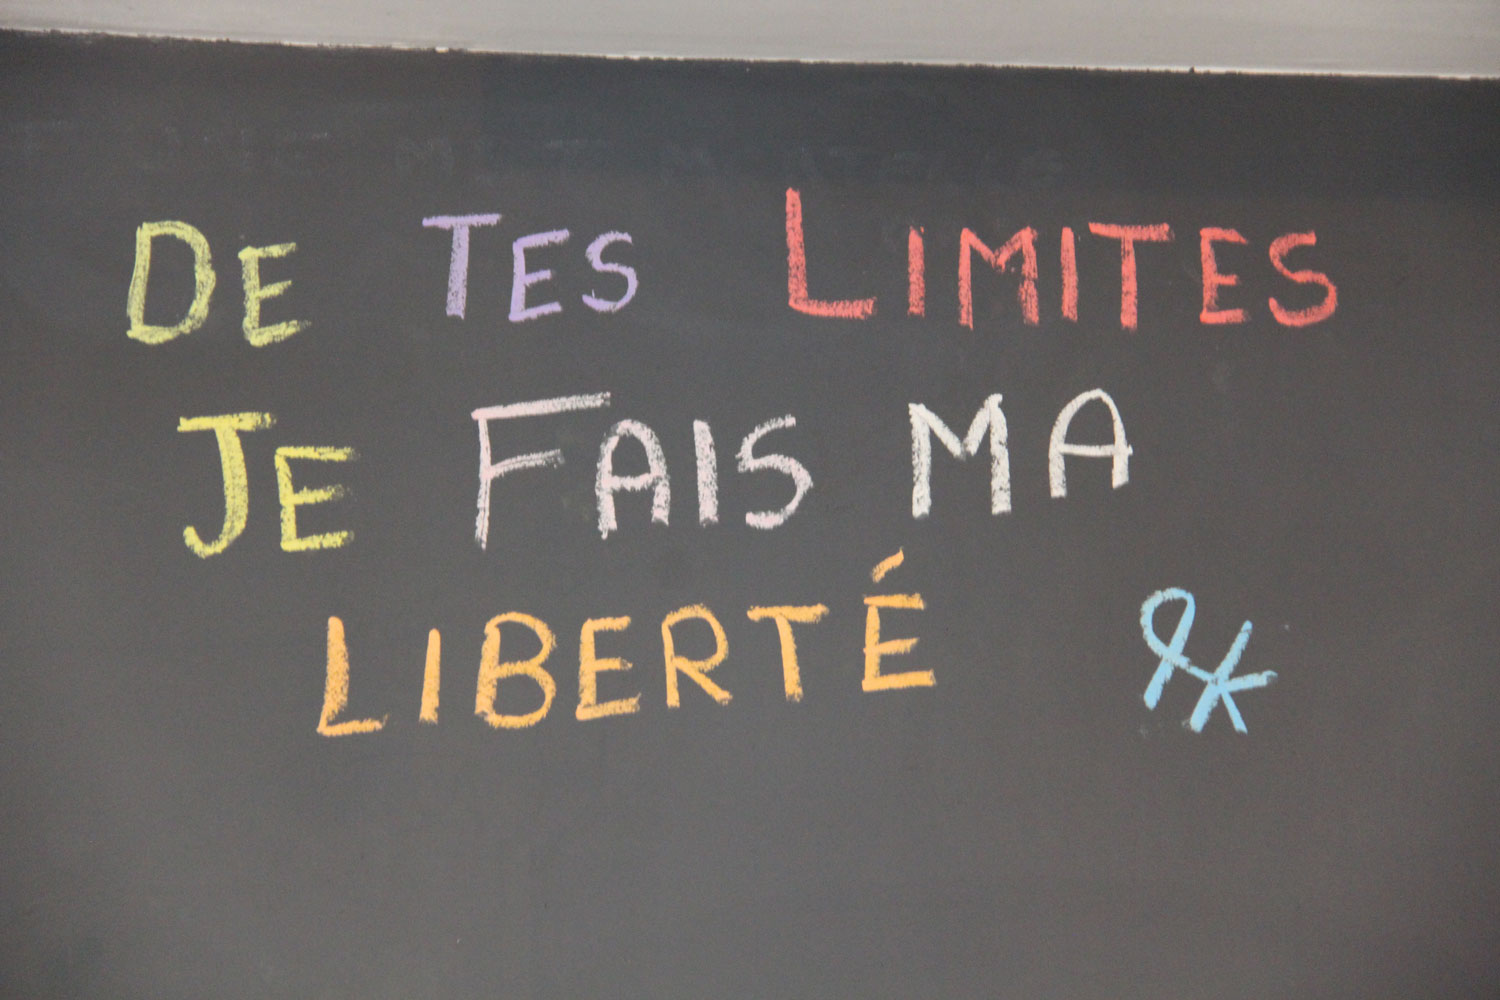 DE TES LIMITES
JE FAIS MA
LIBERTÉ